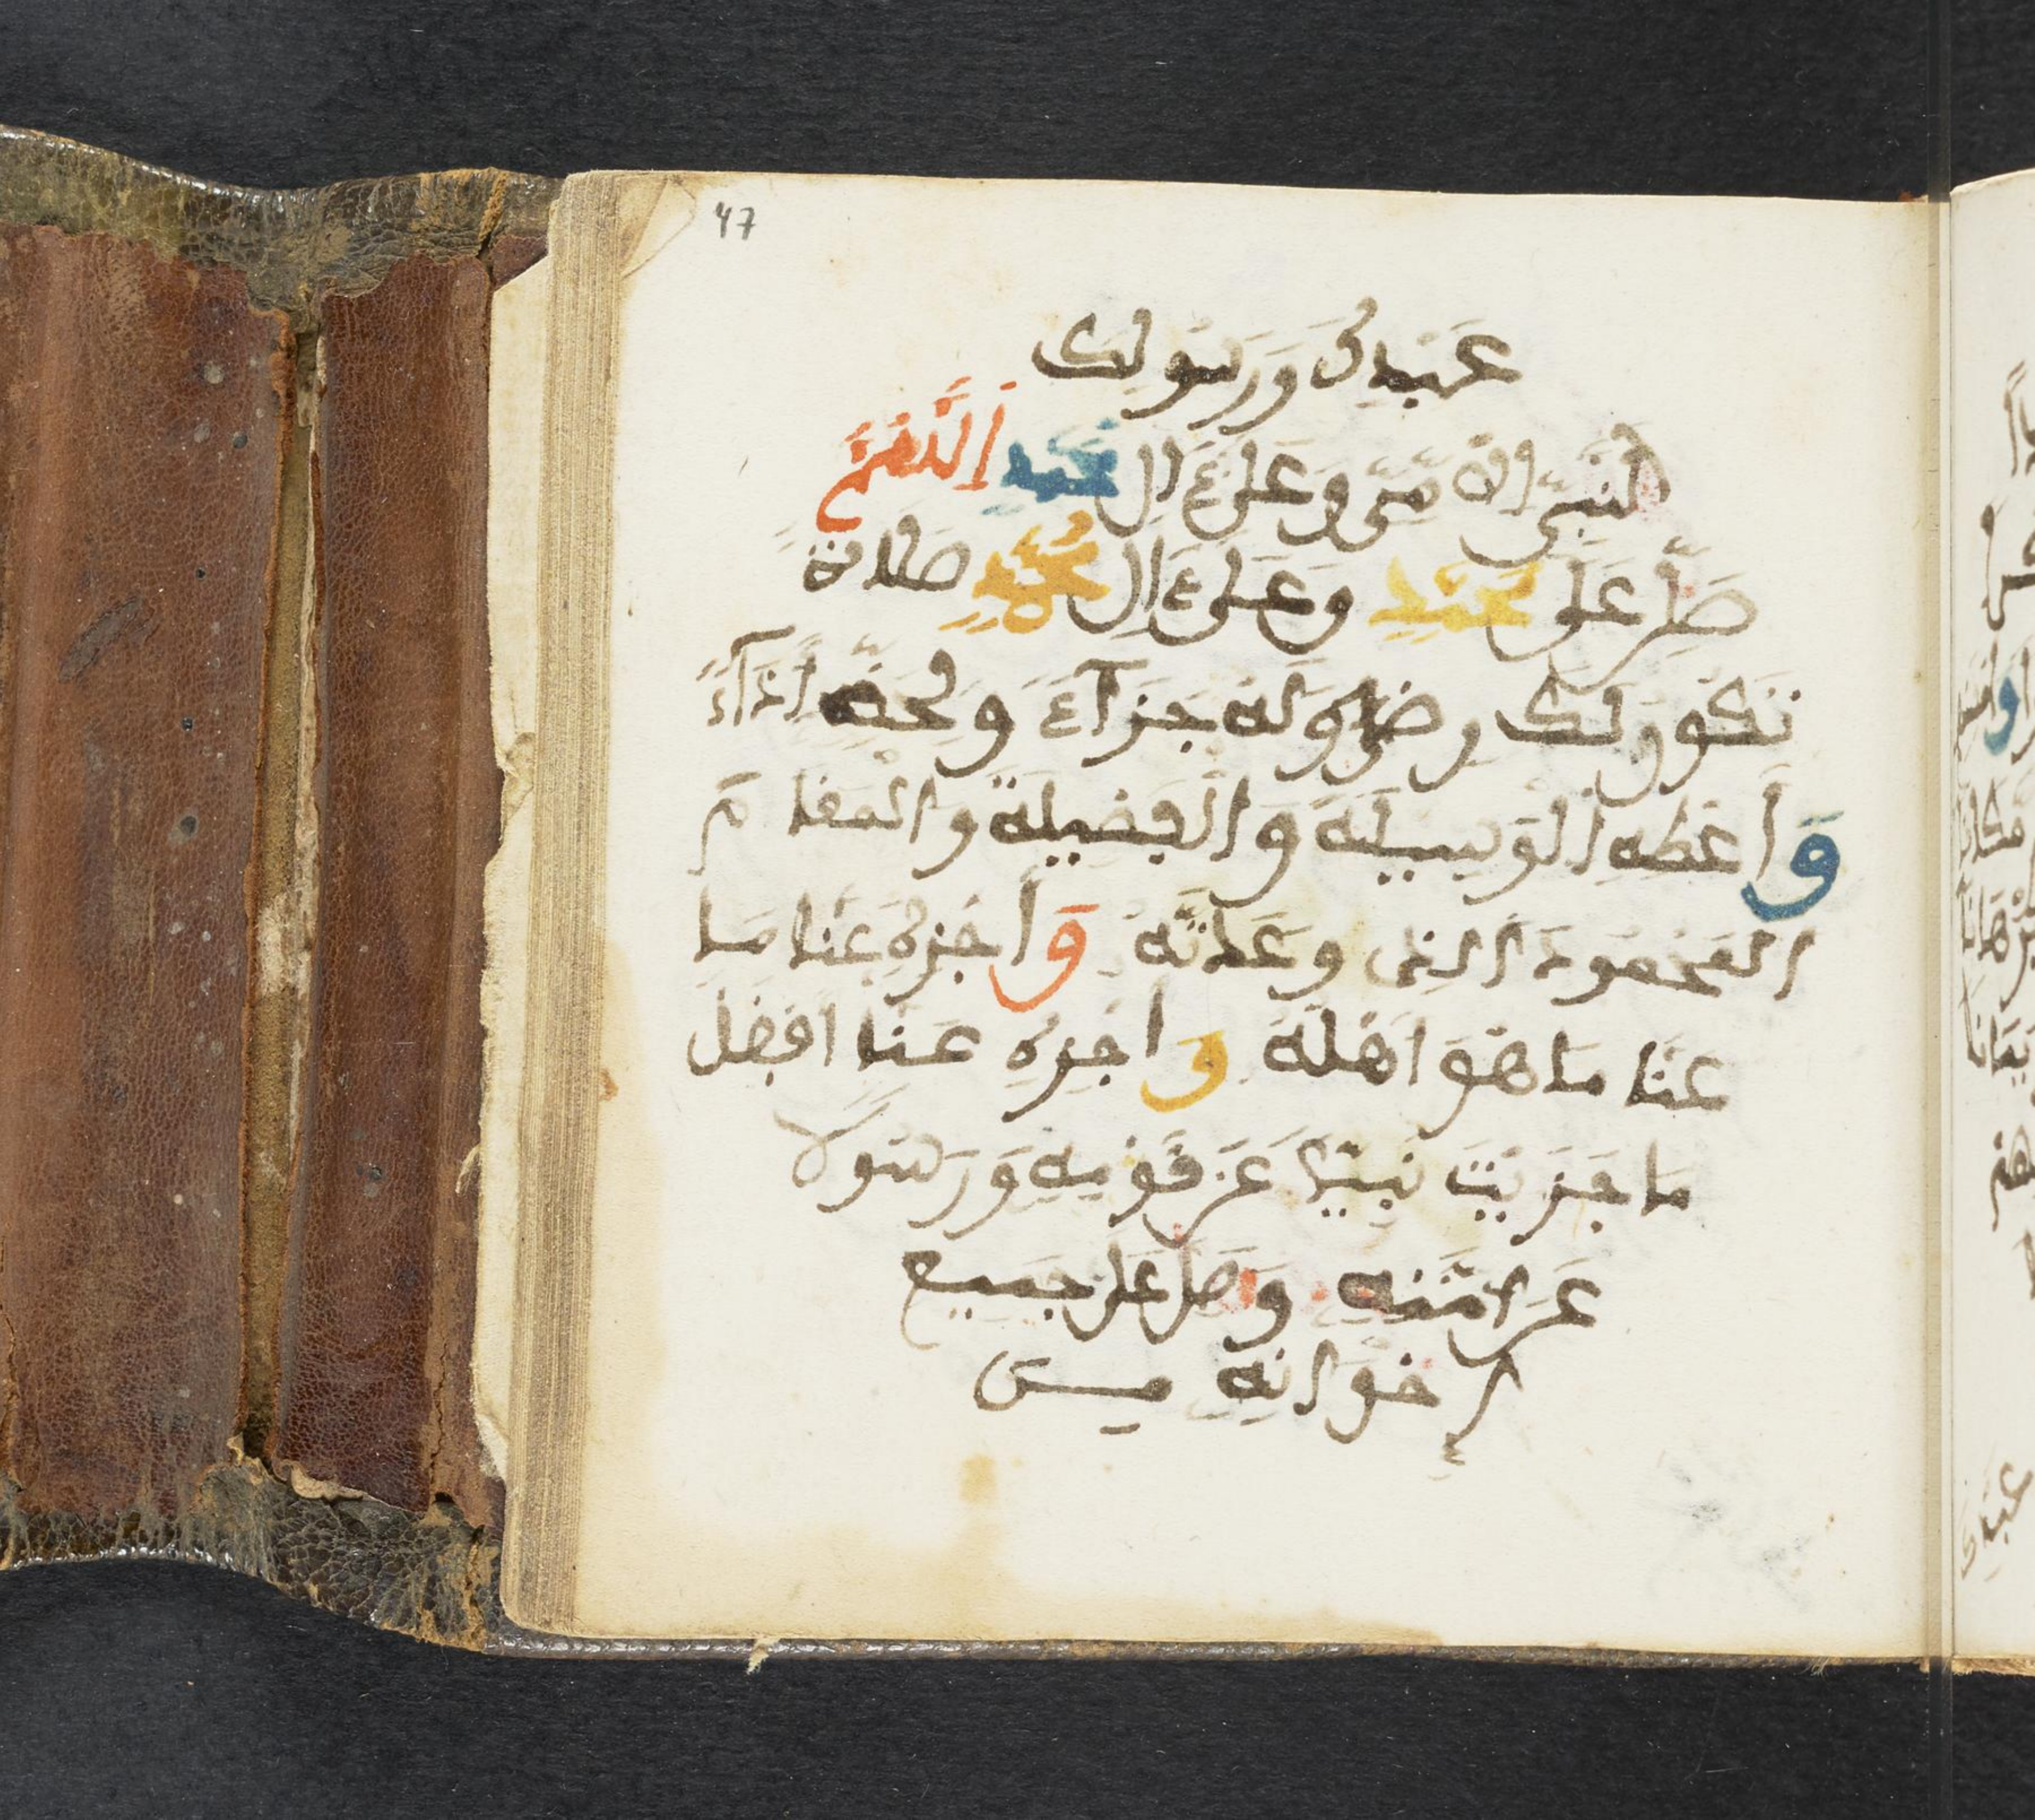 47
عَبْدِكَ وَرَسُولِكَ
النَّبِيِّ الامِّيِّ وَعَلَى ءَالِ مُحَمَّدٍ اَللَّهُمَّ
صَلِّ عَلَى مُحَمَّدٍ وَعَلَى ءَالِ مُحَمَّدٍ صَلَاةً
تَكُونُ لَكَ رِضًى وَلَهُ جَزَآءً وَلِحَقِّهِ أَدَآءً
وَأَعْطِهِ الْوَسِيلَةَ وَالْفَضِيلَةَ وَالْمَقَامَ
الْمَحْمُودَ الَّذِي وَعَدتَّهُ وَاَجْزِهِ عَنَّا مَا
عَنَّا مَا هُوَ أَهْلُهُ وَاجْزِهِ عَنَّا أَفْضَلَ
مَا جَزَيْتَ نَبِيًّا عَن قَوْمِهِ وَرَسُولًا
عَنْ امَّتِهِ وَصَلِّ عَلَى جَمِيعِ
إِخْوَانِهِ مِنَ